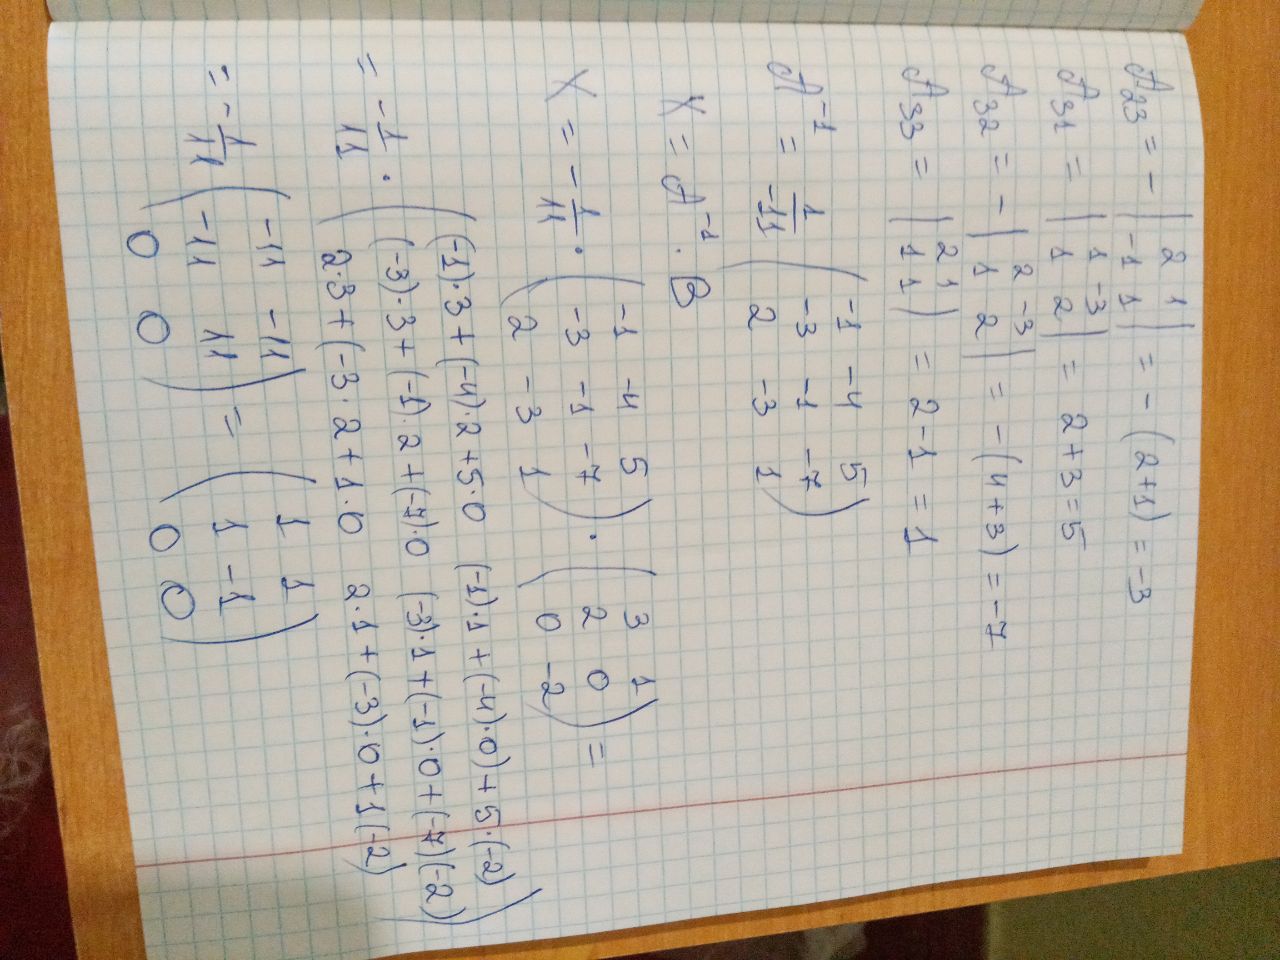 A₂₃ = - | 2 1 ; -1 1 | = - (2+1) = -3
A₃₁ = | 1 -3 ; 1 2 | = 2+3=5
A₃₂ = - | 2 -3 ; 1 2 | = -(4+3) = -7
A₃₃ = | 2 1 ; 1 1 | = 2-1 = 1
A⁻¹ = 1/-11 ( -1 -4 5 ; -3 -1 -7 ; 2 -3 1 )
X = A⁻¹ · B
X = - 1/11 · ( -1 -4 5 ; -3 -1 -7 ; 2 -3 1 ) · ( 3 1 ; 2 0 ; 0 -2 ) =
= - 1/11 · ( (-1)·3+(-4)·2+5·0 (-1)·1+(-4)·0)+5·(-2) ; (-3)·3+(-1)·2+(-7)·0 (-3)·1+(-1)·0+(-7)(-2) ; 2·3+(-3·2+1·0 2·1+(-3)·0+1(-2) )
= - 1/11 ( -11 -11 ; -11 11 ; 0 0 ) = ( 1 1 ; 1 -1 ; 0 0 )